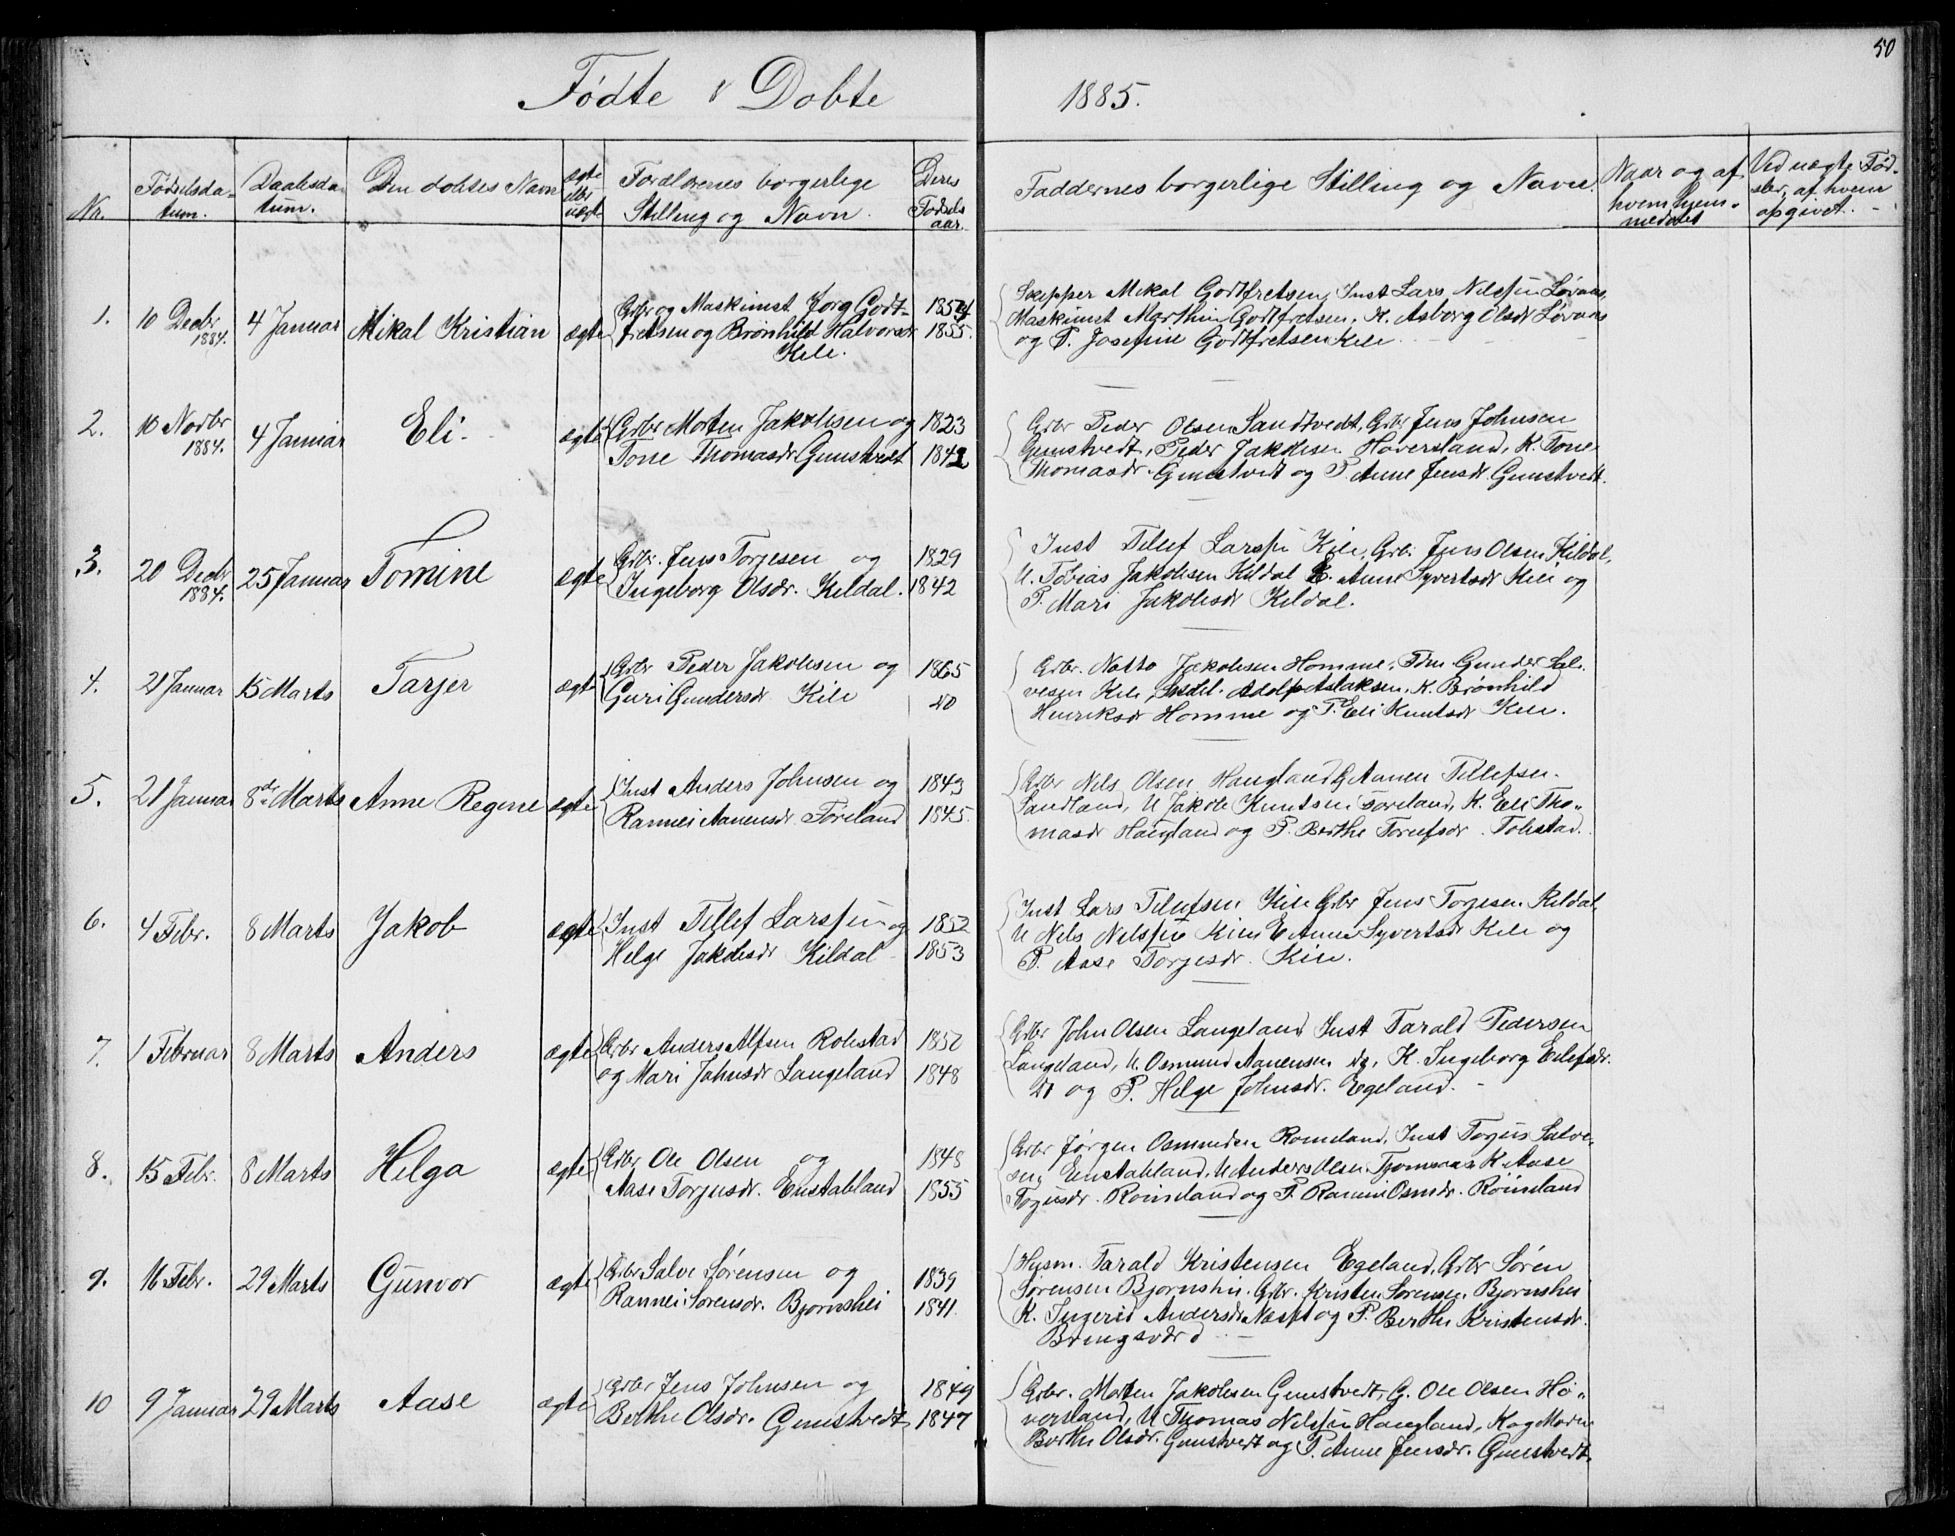 50
Fødte & Døbte 1885.
Nr. Fødselsda-tum. Daabsda-tum. Den døbtes Navn ægte eller uægte Forældrenes borgerlige Stilling og Navn. Deres Fødsels aar. Faddernes borgerlige Stilling og Navn. Naar og af hvem hjem-meddøbt Ved uægte Fød-sler, af hvem opgivet.
1. 10 Decbr 1884. 4 Januar Mikal Kristian ægte
Grbr og Maskinist Jørg Godt- 1854
fretsen og Brønhild Halvorsdr 1855.
Kile.
Skipper Mikal Godtfretsen, Inst Lars Nilssen Løvaas,
Maskinist Marthin Godtfretsen, K. Asborg Olsdr Løvaas
og P. Josefine Godtfretsen Kile
2. 10 Novbr 1884. 4 Januar Eli ægte
Grbr Morten Jakobsen og 1823
Tone Thomasdr Gumstvedt 1842
Grbr Peder Olsen Sandtvedt, Grbr Jens Johnsen
Gumstvedt, Peder Jakobsen Høversland, K. Tone
Thomasdr. Gumstvedt og P. Anne Jensdr Gumstvedt.
3. 20 Decbr 1884. 25 Januar Tomine ægte
Grbr. Jens Torjesen og 1829
Ingeborg Olsdr. Kildal. 1842
Inst Tellef Larssen Kile, Grbr Jens Olsen Kildal,
U. Tobias Jakobsen Kildal E. Anne Syvertsdr Kile og
P. Mari Jakobsdr Kildal.
4. 21 Januar 15 Marts Tarjer ægte
Grbr Peder Jakobsen og 1865
Guri Gundersdr Kile do
Grbr. Natto Jakobsen Homme, Gunder Sal-
vesen Kile, Adolf Aslaksen, K. Brønhild
Henriksdr Homme og P. Eli Knutsdr Kile.
5. 21 Januar 8de Marts Anne Regine ægte
Inst Anders Johnsen og 1843
Rannei Aanensdr Foreland 1845.
Grbr Nils Olsen Haugland G Aanen Tellefsen
Sandland, U Jakob Knutsen Foreland, K. Eli Tho-
masdr Haugland og P. Berthe Torufsdr. Tobstad.
6. 4 Febr. 8 Marts Jakob ægte
Inst Tellef Larssen og 1852
Helge Jakobsdr Kildal 1853
Inst Lars Tellefsen Kile Grbr Jens Torjesen Kildal,
U Nils Nilssen Kile E Anne Syvertsdr Kile og
P. Aase Torjesdr. Kile.
7. 1 Februar 8 Marts Anders ægte
Grbr Anders Alfsen Robstad 1852
og Mari Johnsdr Langeland 1848
Grbr John Olsen Langeland Inst Tarald Pedersen
Langeland, U. Osmund Aanensen do, K. Ingeborg Eilefsdr.
do og P. Helge Johnsdr. Egeland.
8. 15 Febr. 8 Marts Helga ægte
Grbr Ole Olsen og 1848
Aase Torjusdr. Enstabland 1855
Grbr Jørgen Osmundsen Romeland, Inst Tojus Salve-
sen, Enstabland, U Anders Olsen Tjomsaas K Aase
Tojusdr. Romeland og P. Rannei Osmdr. Romeland
9. 16 Febr. 29 Marts Gunvor ægte
Grbr Salve Sørensen og 1839
Rannei Sørensdr. Bjørnshei 1841.
Husm. Tarald Kristensen Egeland, Grbr Søren
Sørensen Bjørnshei. Grbr. Kristen Sørensen. Bjørnshei
K. Ingerid Andersdr og P. Berthe Kristensdr.
Bringsværd
10 9 Januar 29 Marts Aase ægte
Grbr Jens Johnsen og 1849
Berthe Olsdr. Gumstvedt 1847
Grbr. Morten Jakobsen Gumstvedt, G. Ole Olsen Hø-
versland, U Thomas Nilssen Haugland, K og Moder
Berthe Olsdr. Gumstvedt og P. Anne Jensdr. Gumstvedt.